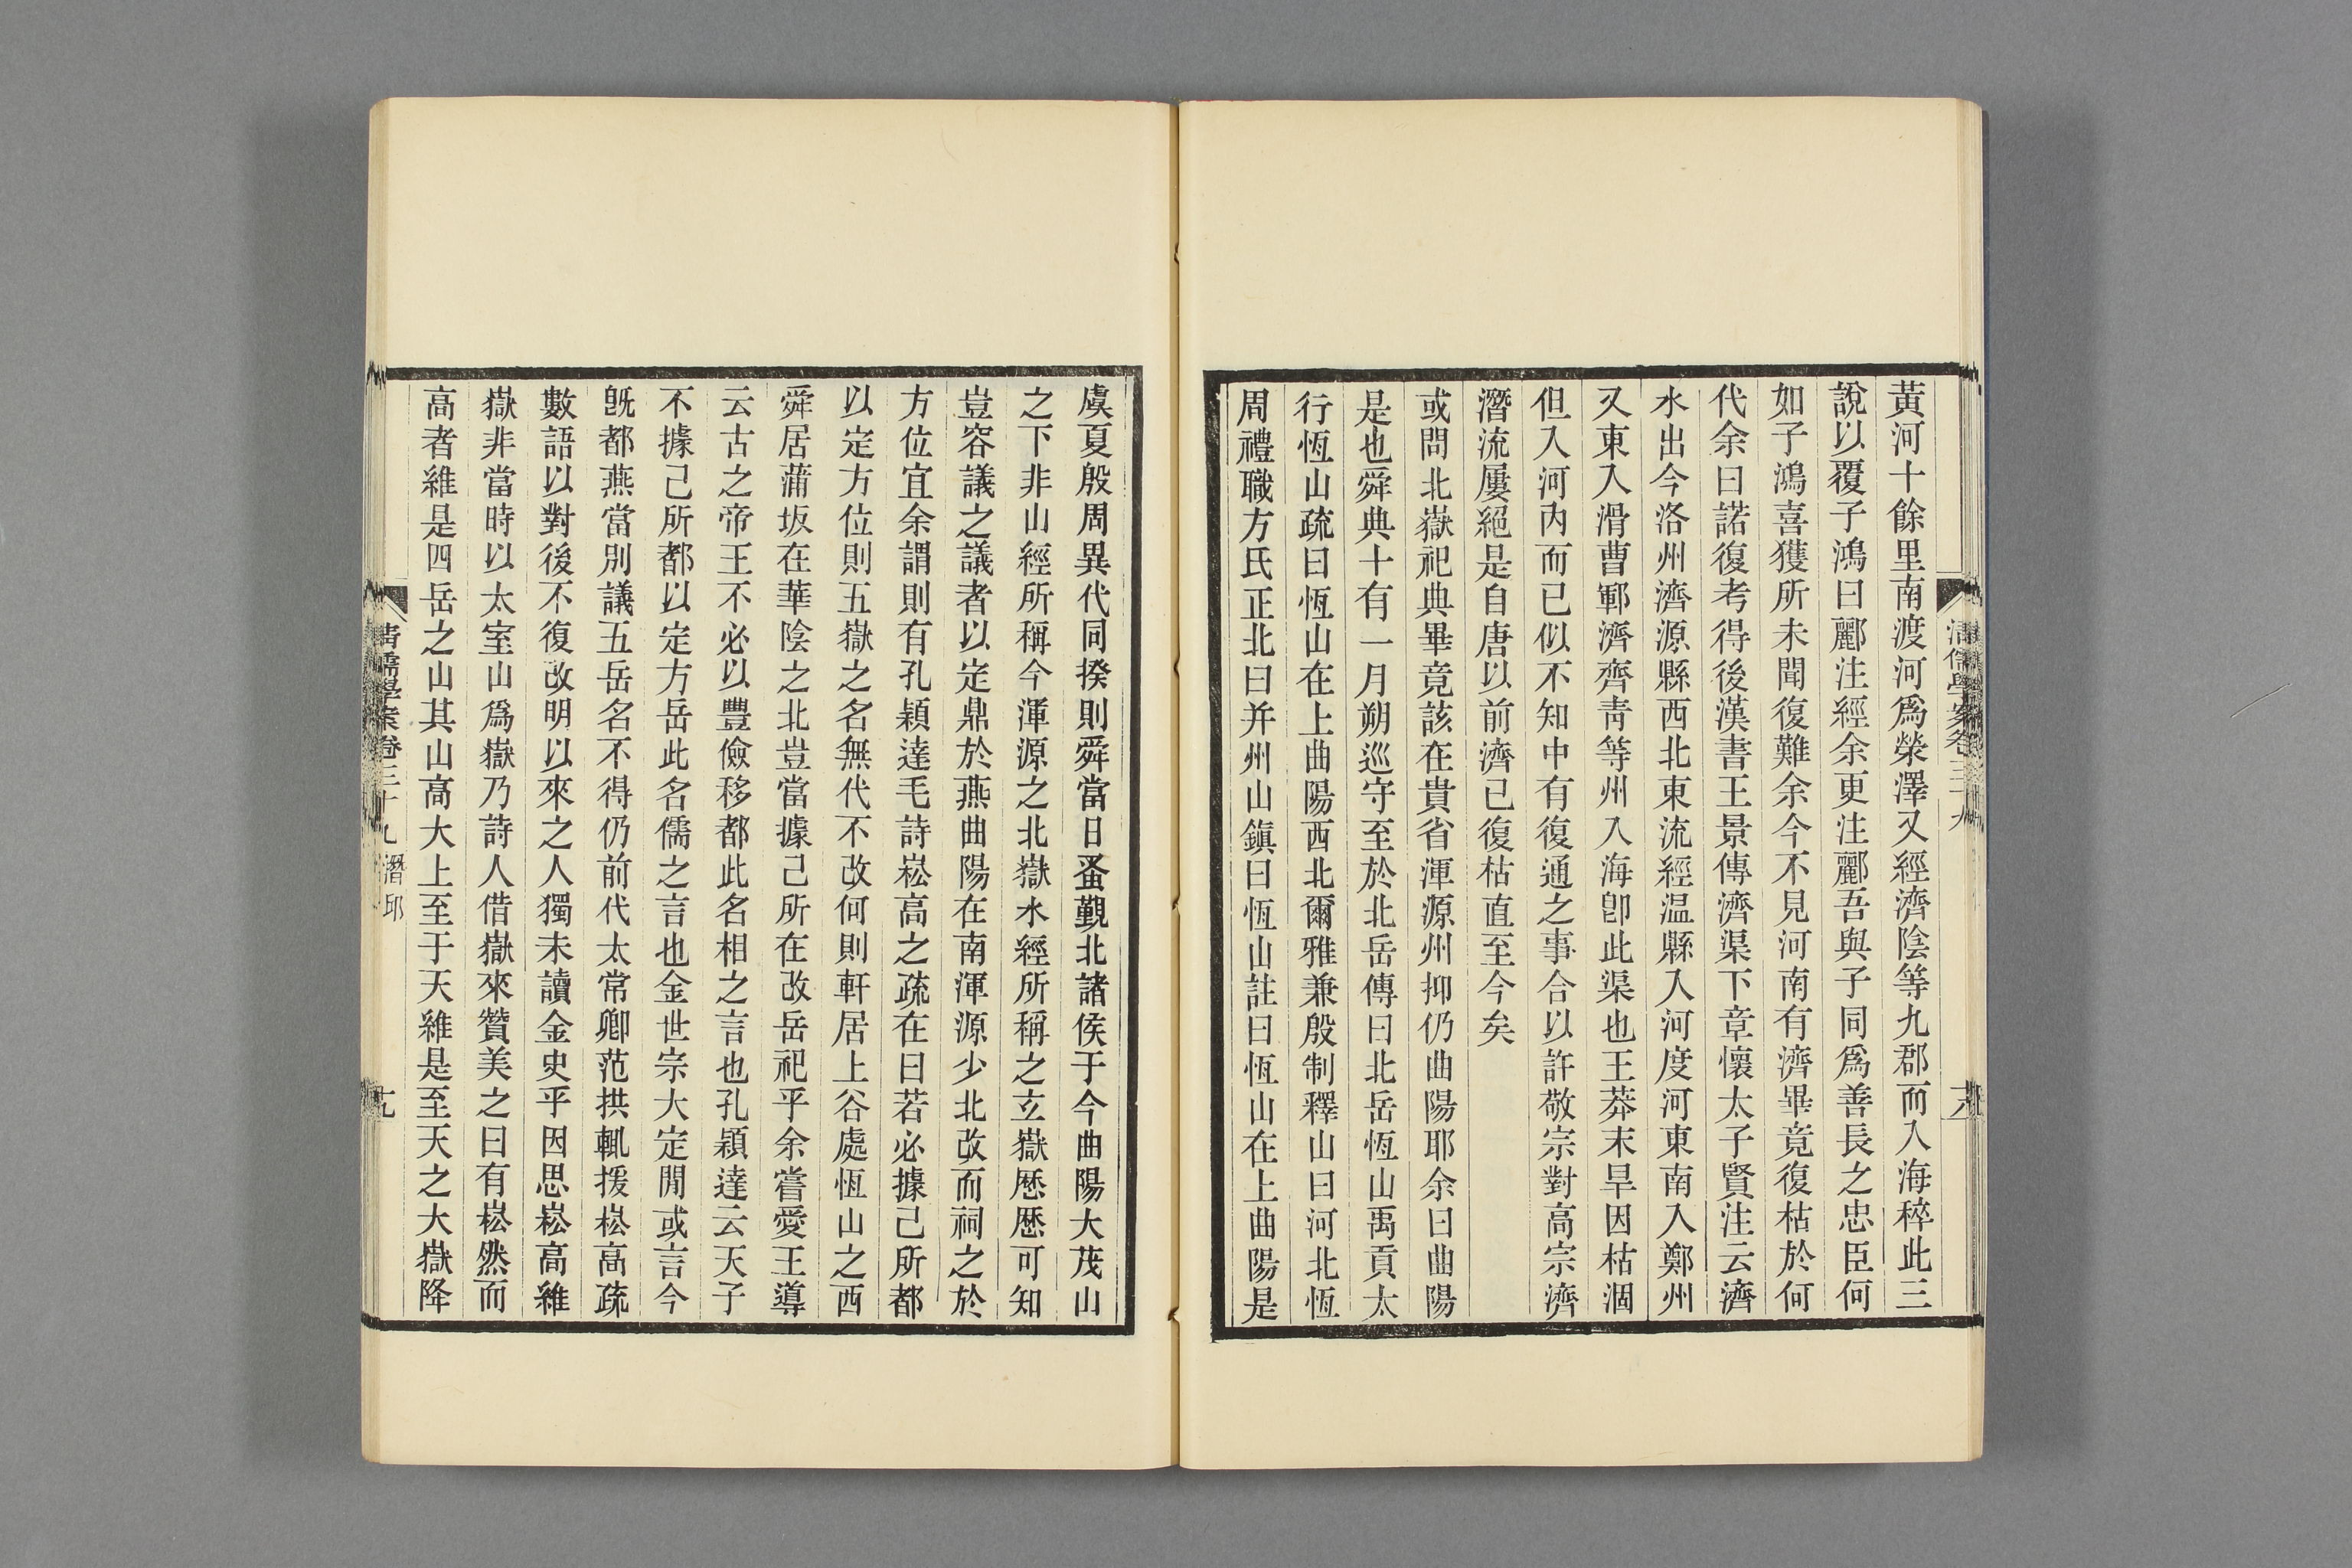 黃河十餘里南渡河爲滎澤又經濟陰等九郡而入海稡此三
說以覆子鴻曰酈注經余更注酈吾與子同爲善長之忠臣何
如子鴻喜獲所未聞復難余今不見河南有濟畢竟復枯於何
代余曰諾復考得後漢書王景傳濟渠下章懷太子賢注云濟
水出今洛州濟源縣西北東流經温縣入河度河東南入鄭州
又東入滑曹鄆濟齊青等州入海卽此渠也王莽末旱因枯涸
但入河內而已似不知中有復通之事合以許敬宗對高宗濟
潛流屢絕是自唐以前濟已復枯直至今矣
或問北嶽祀典畢竟該在貴省渾源州抑仍曲陽耶余曰曲陽
是也舜典十有一月朔巡守至於北岳傳曰北岳恆山禹貢太
行恆山疏曰恆山在上曲陽西北爾雅兼殷制釋山曰河北恆
周禮職方氏正北曰并州山鎮曰恆山註曰恆山在上曲陽是
虞夏殷周異代同揆則舜當日蚤覲北諸侯于今曲陽大茂山
之下非山經所稱今渾源之北嶽水經所稱之玄嶽歷歷可知
豈容議之議者以定鼎於燕曲陽在南渾源少北改而祠之於
方位宜余謂則有孔穎達毛詩崧高之疏在曰若必據己所都
以定方位則五嶽之名無代不改何則軒居上谷處恆山之西
舜居蒲坂在華陰之北豈當據己所在改岳祀乎余嘗愛王導
云古之帝王不必以豐儉移都此名相之言也孔穎達云天子
不據己所都以定方岳此名儒之言也金世宗大定閒或言今
旣都燕當別議五岳名不得仍前代太常卿范拱輒援崧高疏
數語以對後不復改明以來之人獨未讀金史乎因思崧高維
嶽非當時以太室山爲嶽乃詩人借嶽來贊美之曰有崧然而
高者維是四岳之山其山高大上至于天維是至天之大嶽降
清儒學案卷三十九 潛邱
十九